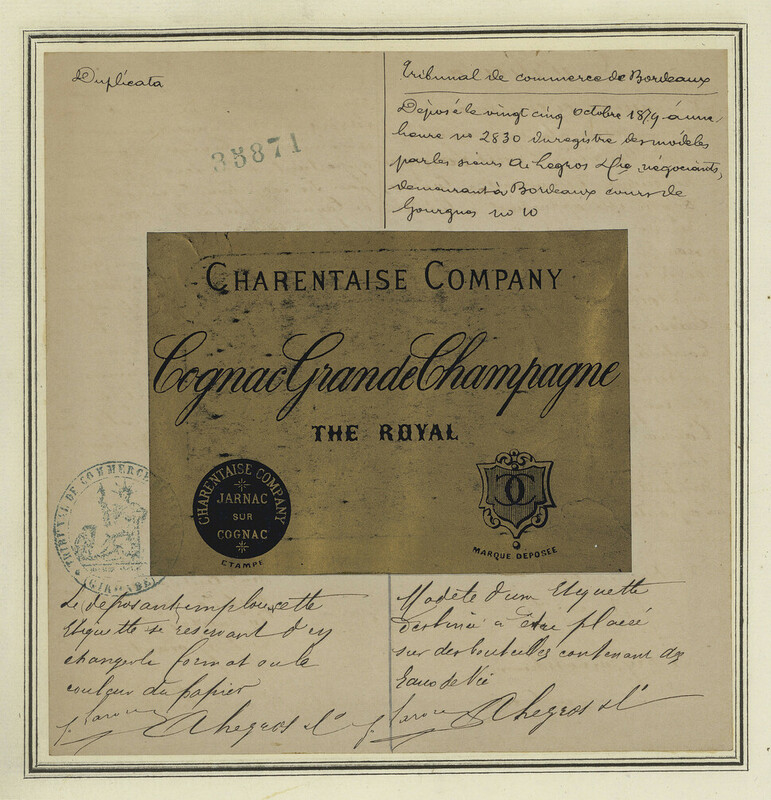 Duplicata
35871
Tribunal de commerce de Bordeaux
Déposé le vingt cinq octobre 1879 à une
heure no 2830 du registre des modèles
par les sieurs A. Legros & Cie négociants,
demeurant à Bordeaux cours de
Gourgues no 10
CHARENTAISE COMPANY
Cognac Grande Champagne
THE ROYAL
CHARENTAISE COMPANY
JARNAC
SUR
COGNAC
ETAMPE
MARQUE DEPOSEE
TRIBUNAL DE COMMERCE
(GIRONDE)
Le déposant emploie cette
Etiquette se réservant d'en
changer le format ou la
couleur du papier
A Legros & Cie
Modèle d'une Etiquette
destinée à être placée
sur des bouteilles contenant des
Eaux de Vie
A Legros & Cie